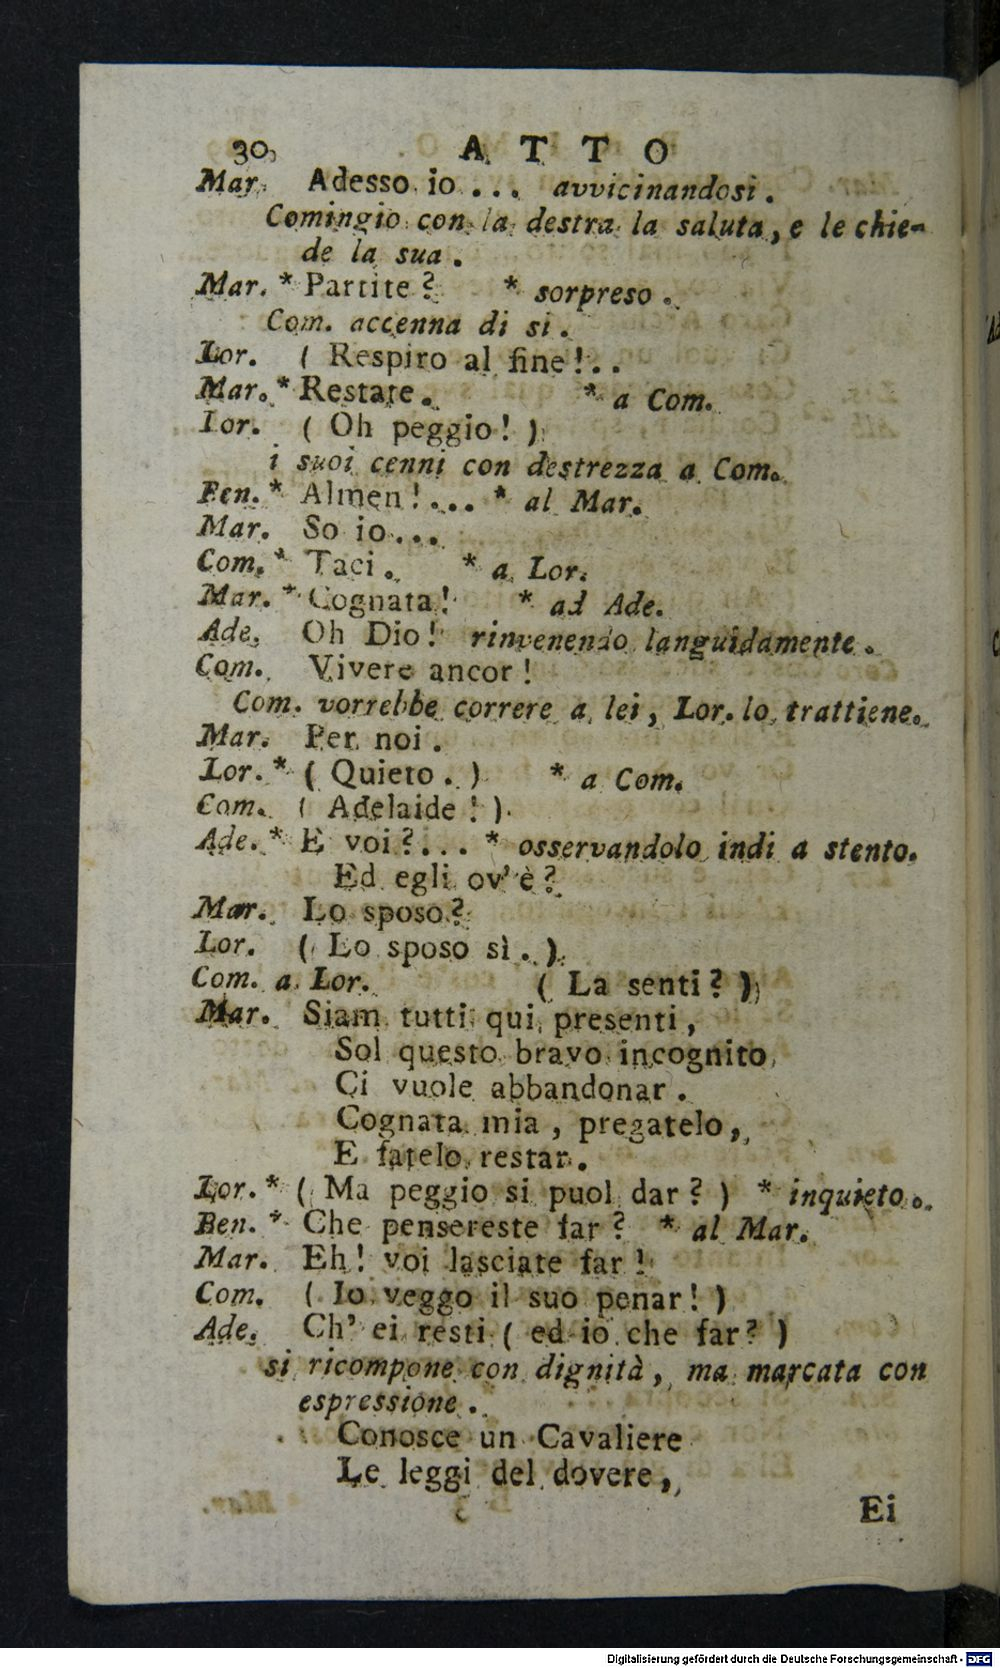 30 ATTO
Mar. Adesso io... avvicinandosi.
Comingio con la destra la saluta, e le chie-
de la sua.
Mar. * Partite? * sorpreso.
Com. accenna di si.
Lor. ( Respiro al fine!..
Mar. * Restate. * a Com.
Lor. ( Oh peggio! )
i suoi cenni con destrezza a Com.
Ben. * Almen!... * al Mar.
Mar. So io...
Com. * Taci. * a Lor.
Mar. * Cognata! * ad Ade.
Ade. Oh Dio! rinvenendo languidamente.
Com. Vivere ancor!
Com. vorrebbe correre a lei, Lor. lo trattiene.
Mar. Per noi.
Lor. * ( Quieto. ) * a Com.
Com. ( Adelaide! )
Ade. * E voi?... * osservandolo indi a stento.
Ed egli ov' è?
Mar. Lo sposo?
Lor. ( Lo sposo sì. )
Com. a Lor. ( La senti? )
Mar. Siam tutti qui presenti,
Sol questo bravo incognito
Ci vuole abbandonar.
Cognata mia, pregatelo,
E fatelo restar.
Lor. * ( Ma peggio si puol dar? ) * inquieto.
Ben. * Che pensereste far? * al Mar.
Mar. Eh! voi lasciate far!
Com. ( Io veggo il suo penar! )
Ade. Ch' ei resti ( ed io che far? )
si ricompone con dignità, ma marcata con
espressione.
Conosce un Cavaliere
Le leggi del dovere,
Ei
Digitalisierung gefördert durch die Deutsche Forschungsgemeinschaft - DFG